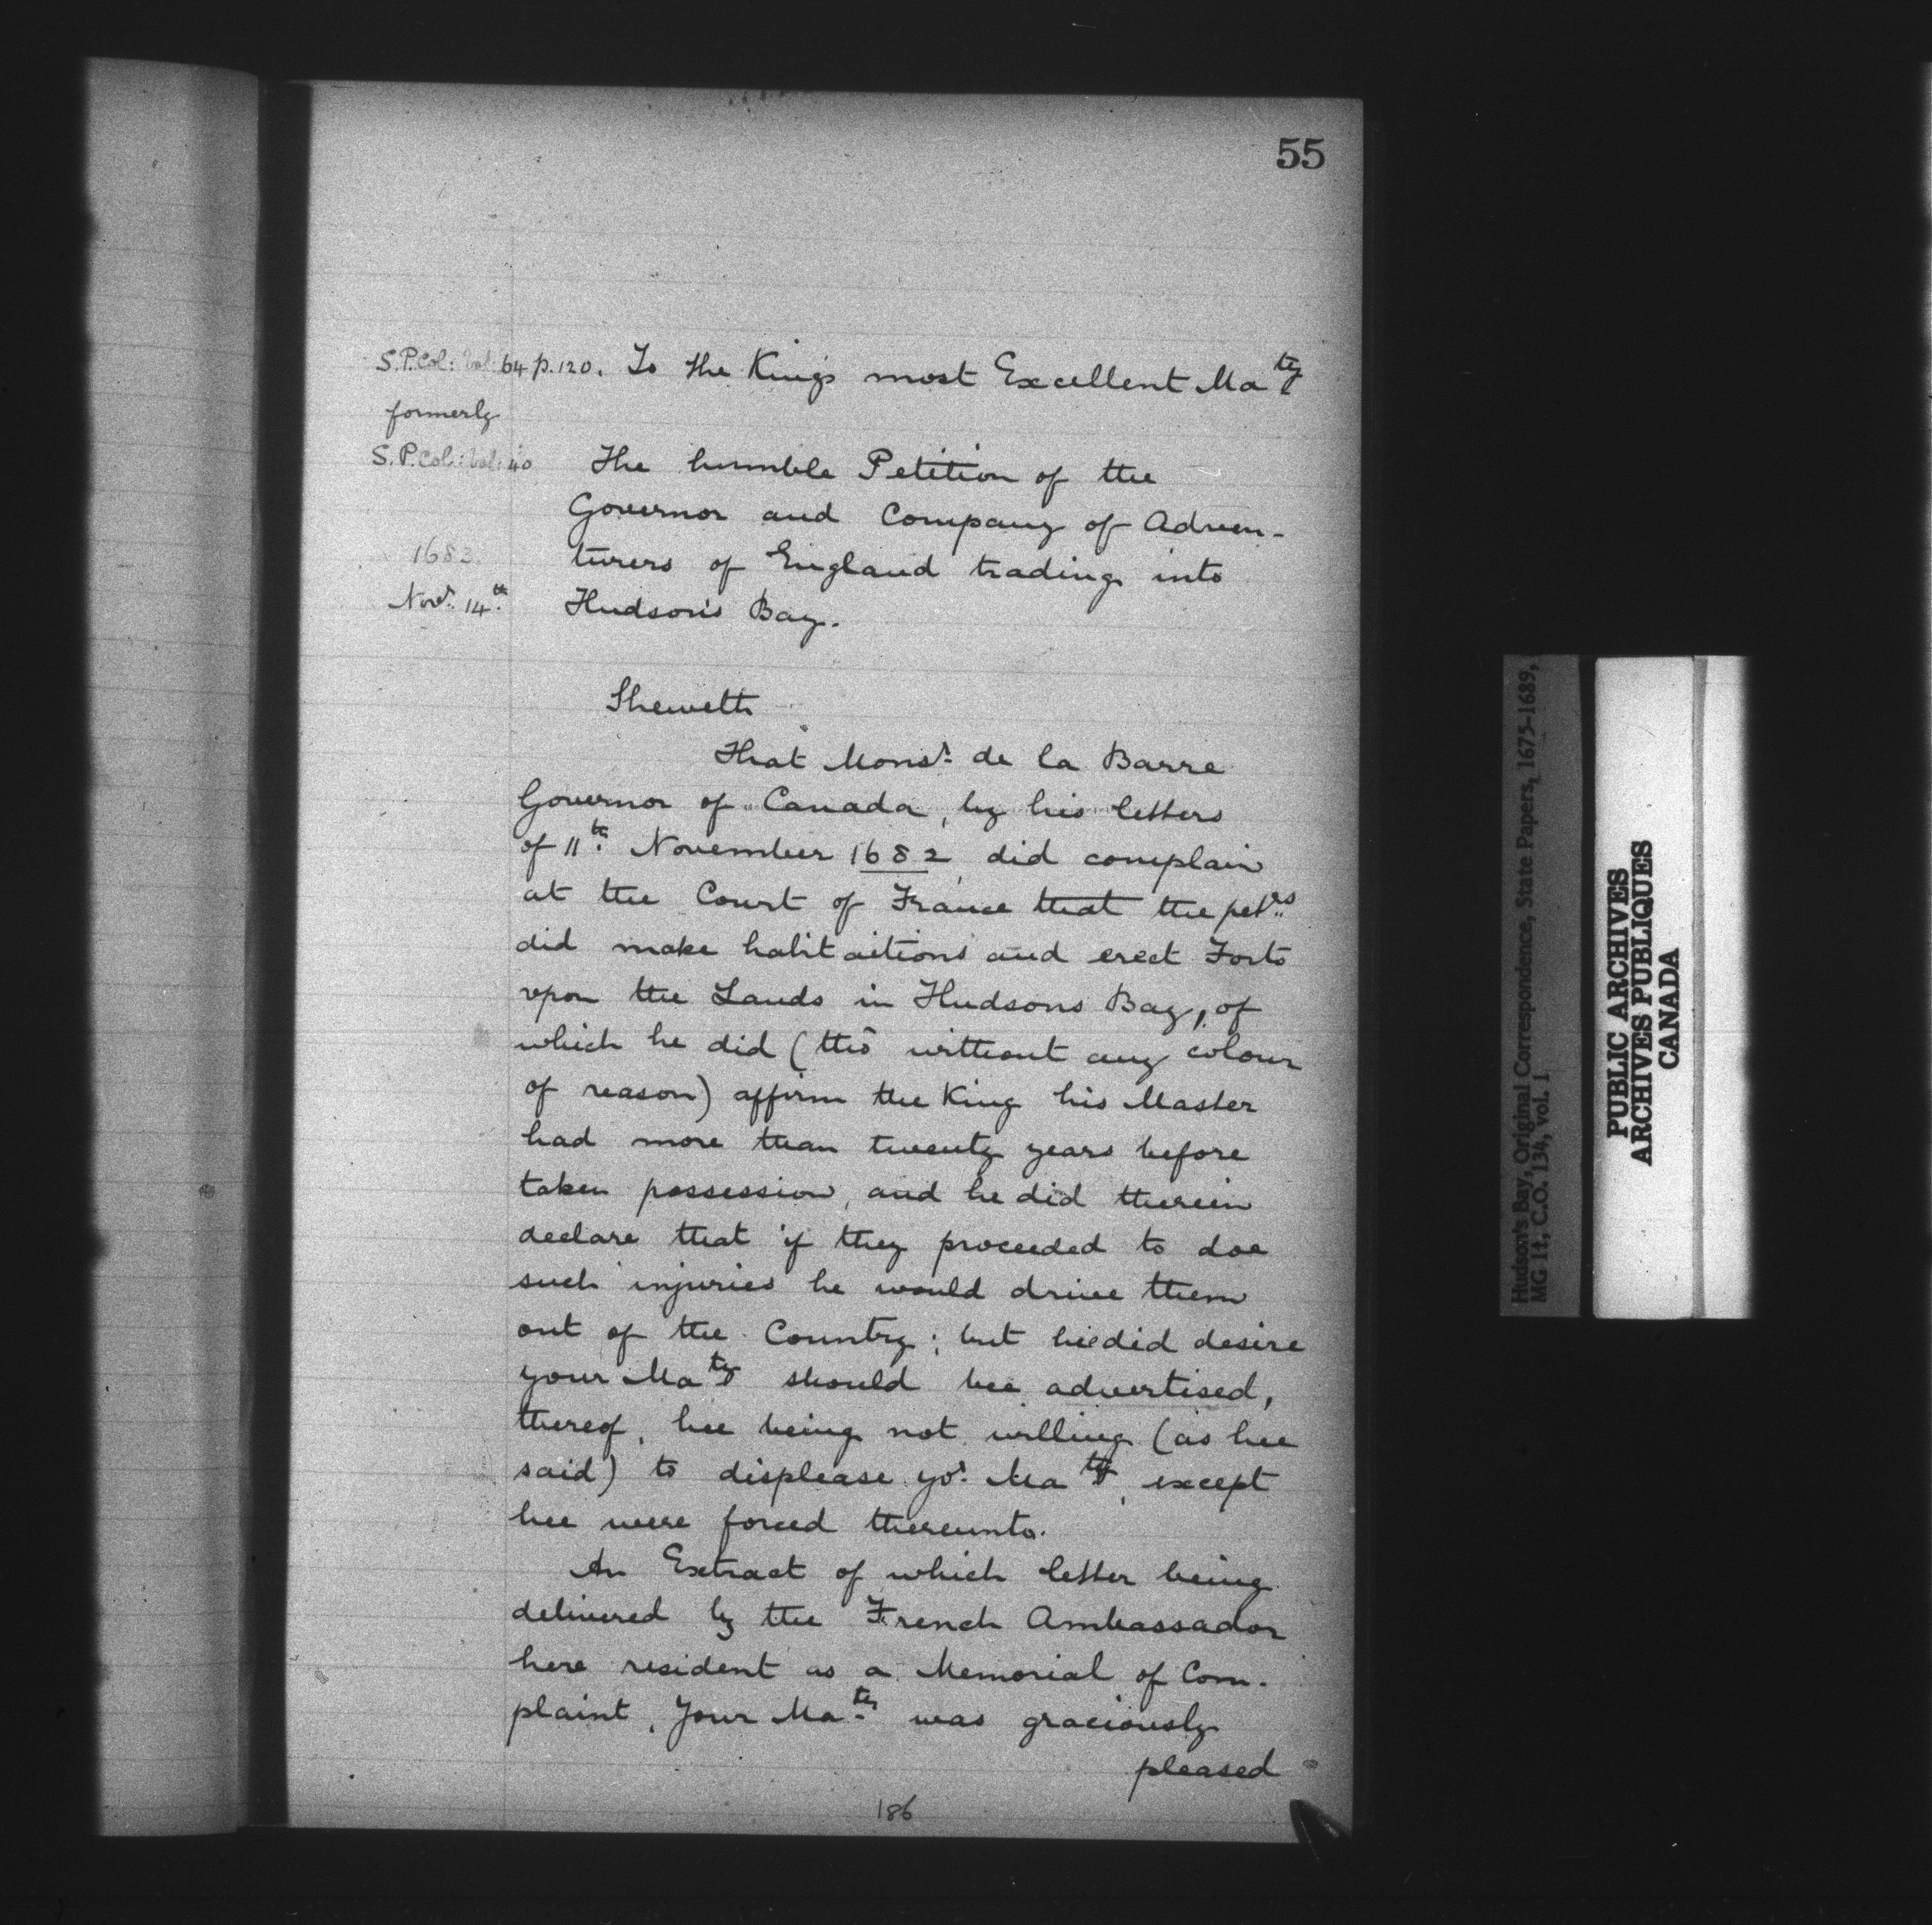 55
S.P. Col: Vol: 64 p. 120. To the Kings most Excellent Ma^ty
formerly
S.P. Col: Vol: 40
The humble Petition of the
Governor and Company of Adven-
turers of England trading into
Hudson's Bay.
1683
Nov^r. 14^th.
Sheweth
That Mons^r. de la Barre
Governor of Canada, by his letters
of 11^th. November 1682, did complain
at the Court of France that the pet^rs.
did make habitations and erect Forts
vpon the Lands in Hudsons Bay, of
which he did (tho without any colour
of reason) affirm the King his Master
had more than twenty years before
taken possession, and he did therein
declare that if they proceeded to doe
such injuries he would drive them
out of the Country; but hee did desire
your Ma^ty should bee advertised,
thereof, hee being not willing (as hee
said) to displease yo^r. Ma^ty, except
hee were forced thereunto.
An Extract of which letter being
delivered by the French Ambassador
here resident as a Memorial of Com-
plaint, Your Ma^ty. was graciously
pleased
186
Hudson's Bay, Original Correspondence, State Papers, 1675-1689,
MG 11, C.O. 134, vol. 1
PUBLIC ARCHIVES
ARCHIVES PUBLIQUES
CANADA